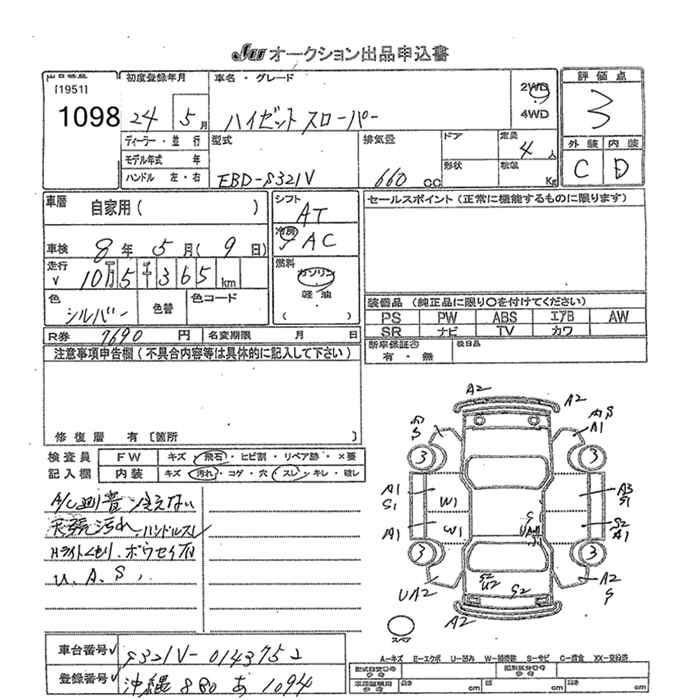 JU オークション出品申込書
出品番号
[1951]
1098
初度登録年月
24 5月
車名・グレード
ハイゼット スローパー
2WD
4WD
評価点
3
ディーラー・並行
モデル年式 年
ハンドル 左・右
型式
EBD-S321V
排気量
660 cc
ドア
形状
定員
4人
積載
Kg
外装 内装
C D
車歴
自家用( )
車検 8年 5月(9日)
走行 10万5千365km
色
シルバー
色替
色コード
シフト
AT
冷房
AC
燃料
ガソリン
軽油
( )
セールスポイント(正常に機能するものに限ります)
装備品(純正品に限り○を付けてください)
PS PW ABS エアB AW
SR ナビ TV カワ
R券 7690円
名変期限 月 日
新車保証書
有・無
後日品
注意事項申告欄(不具合内容等は具体的に記入して下さい)
修復歴 有〔箇所 〕
検査員 FW キズ・飛石・ヒビ割・リペア跡・×要
記入欄 内装 キズ・汚れ・コゲ・穴・スレ・キレ・破し
冷えない
汚れ、ハンドルスレ
Hライトくもり、ボウセイ有
U、A、S、
A2
A2
S
A S
A1
3
3
A1
S1
W1
A3
S1
A1
W1
S
S2
A1
3
3
UA2
S2
U2
S2
A2
S
A2
スペア
A-キズ E-エクボ U-凹み W-補修跡 S-サビ C-腐食 XX-交換済
車台番号 S321V-0143752
登録番号 沖縄 880 あ 1094
型式指定番号
類別区分番号
参考
cm cm cm